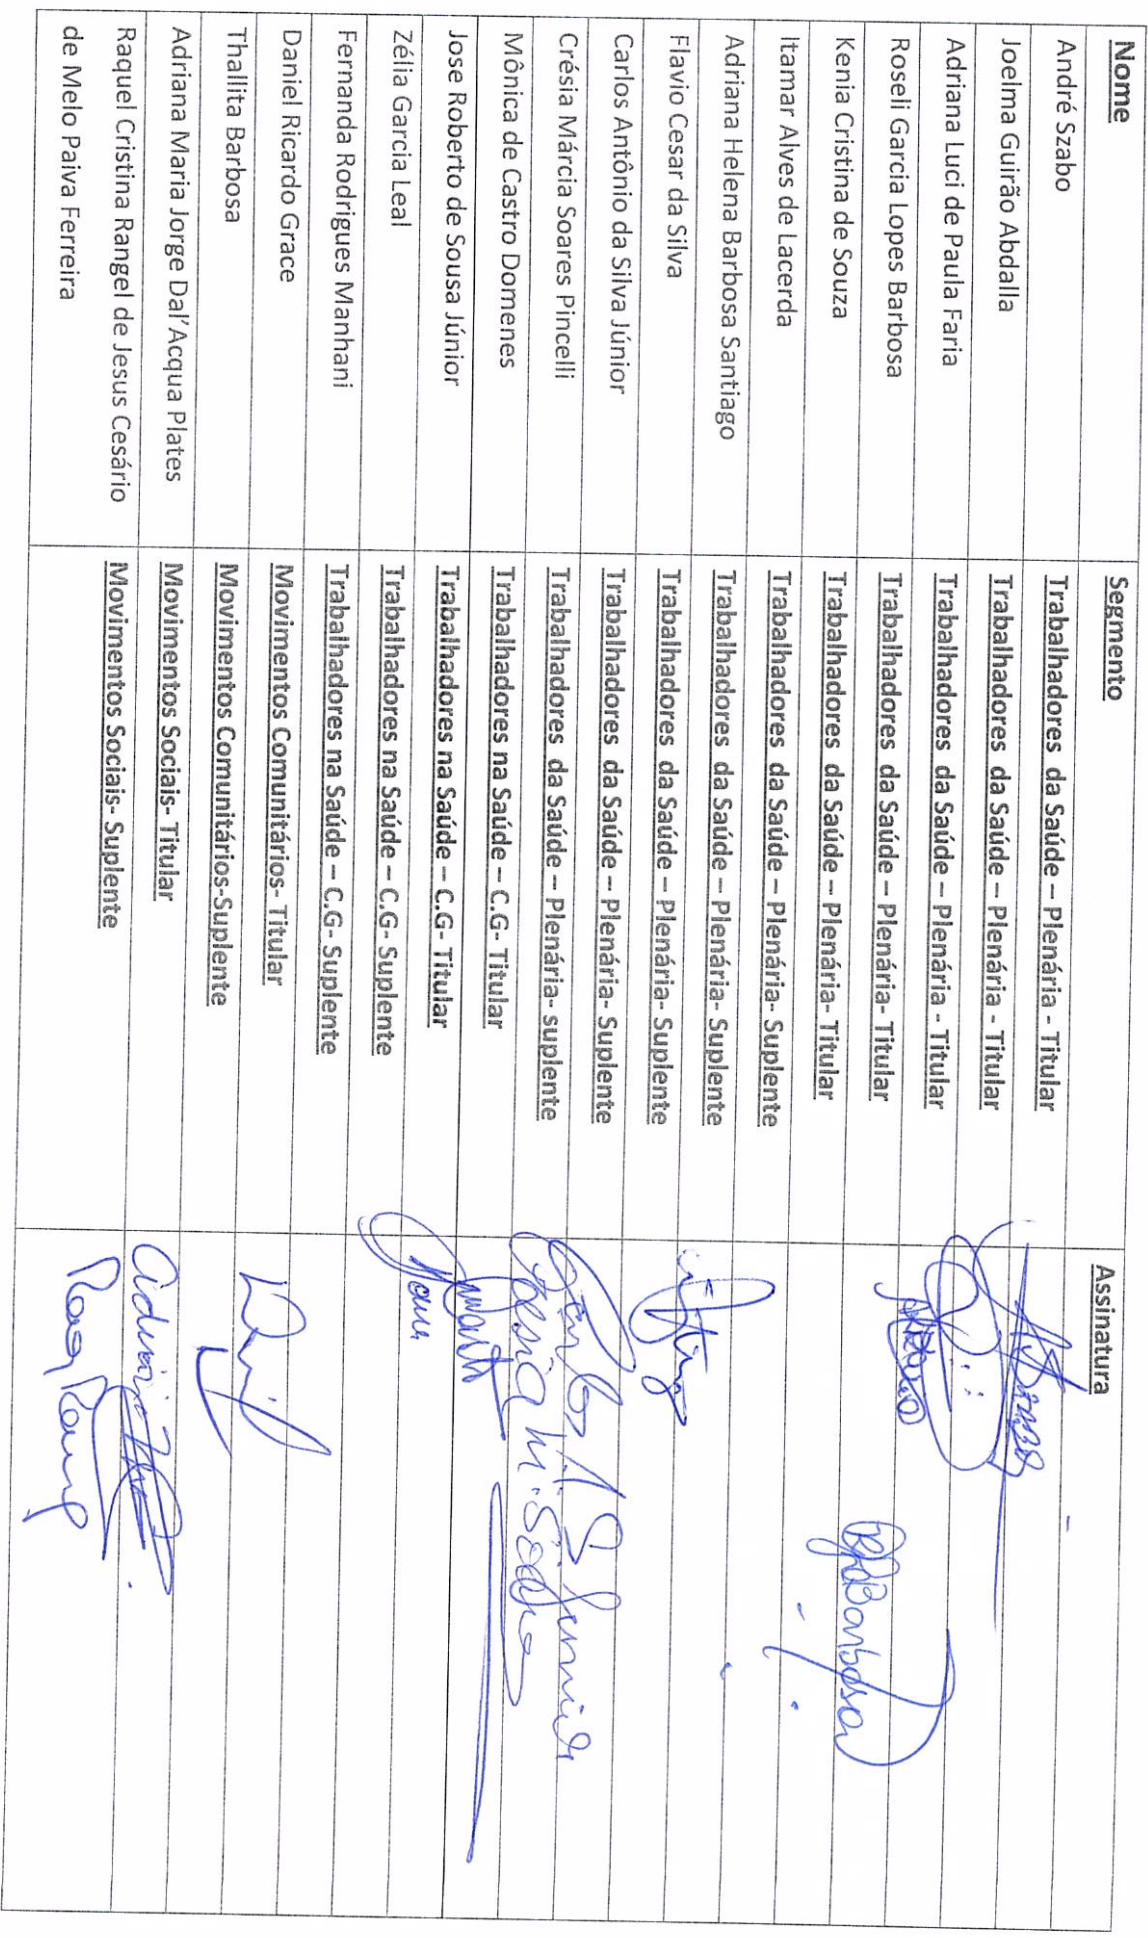 Nome Segmento Assinatura
André Szabo Trabalhadores da Saúde – Plenária - Titular
Joelma Guirão Abdalla Trabalhadores da Saúde – Plenária - Titular
Adriana Luci de Paula Faria Trabalhadores da Saúde – Plenária - Titular
Roseli Garcia Lopes Barbosa Trabalhadores da Saúde – Plenária- Titular
Kenia Cristina de Souza Trabalhadores da Saúde – Plenária- Titular
Itamar Alves de Lacerda Trabalhadores da Saúde – Plenária- Suplente
Adriana Helena Barbosa Santiago Trabalhadores da Saúde – Plenária- Suplente
Flavio Cesar da Silva Trabalhadores da Saúde – Plenária- Suplente
Carlos Antônio da Silva Júnior Trabalhadores da Saúde – Plenária- Suplente
Crésia Márcia Soares Pincelli Trabalhadores da Saúde – Plenária- suplente
Mônica de Castro Domenes Trabalhadores na Saúde – C.G- Titular
Jose Roberto de Sousa Júnior Trabalhadores na Saúde – C.G- Titular
Zélia Garcia Leal Trabalhadores na Saúde – C.G- Suplente
Fernanda Rodrigues Manhani Trabalhadores na Saúde – C.G- Suplente
Daniel Ricardo Grace Movimentos Comunitários- Titular
Thallita Barbosa Movimentos Comunitários-Suplente
Adriana Maria Jorge Dal'Acqua Plates Movimentos Sociais- Titular
Raquel Cristina Rangel de Jesus Cesário Movimentos Sociais- Suplente
de Melo Paiva Ferreira